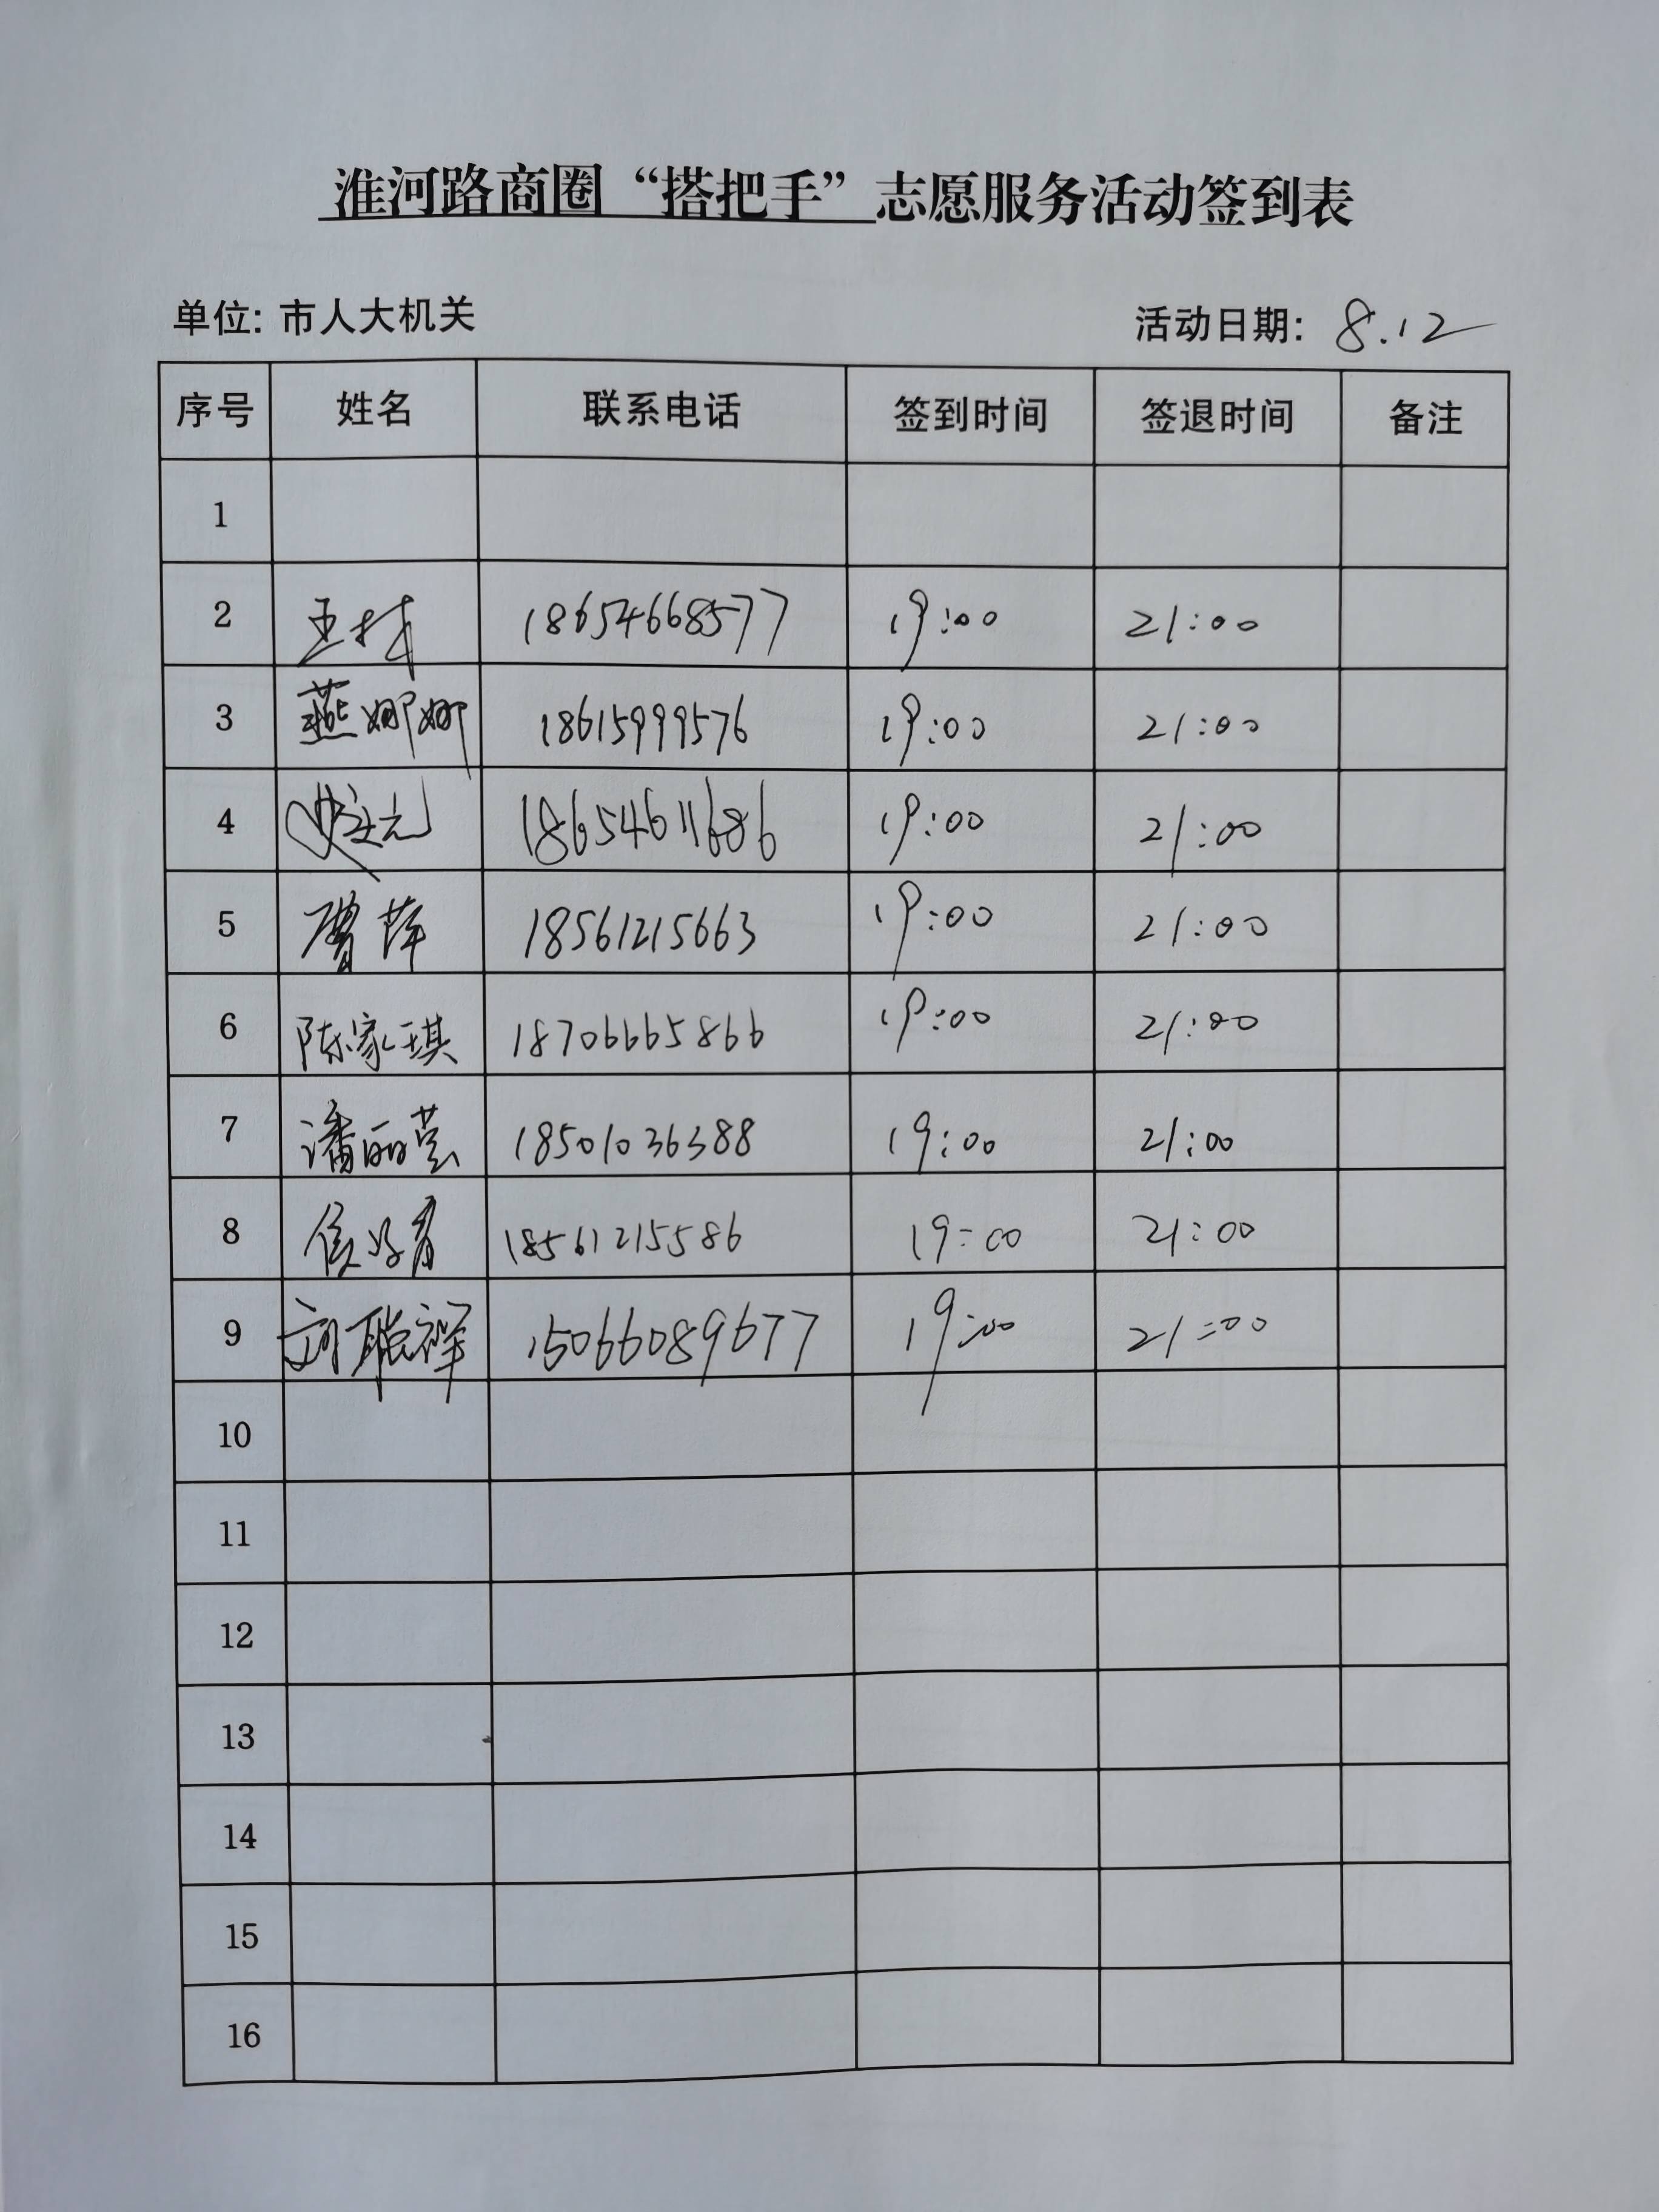 淮河路商圈“搭把手”志愿服务活动签到表
单位: 市人大机关 活动日期: 8.12
序号 姓名 联系电话 签到时间 签退时间 备注
1
2 王林 18654668577 19:00 21:00
3 燕娜娜 18615999576 19:00 21:00
4 18654611686 19:00 21:00
5 18561215663 19:00 21:00
6 陈家琪 18706665866 19:00 21:00
7 潘丽芸 18501036388 19:00 21:00
8 18561215586 19:00 21:00
9 刘聪祥 15066089677 19:00 21:00
10
11
12
13
14
15
16